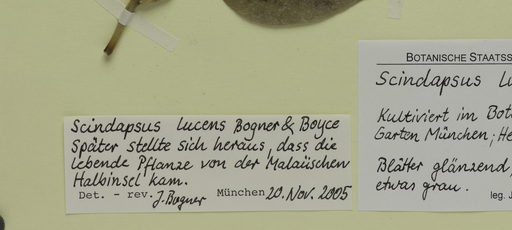 Scindapsus lucens Bogner & Boyce
Später stellte sich heraus, dass die
lebende Pflanze von der Malaiischen
Halbinsel kam.
Det. - rev. J. Bogner München 20. Nov. 2005
BOTANISCHE STAATSS
Scindapsus lu
Kultiviert im Bot
Garten München; He
Blätter glänzend,
etwas grau.
leg. J